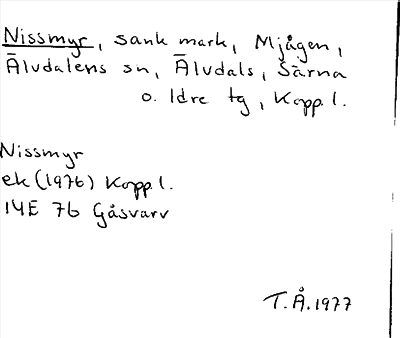 Nissmyr, sank mark, Mjågen,
Älvdalens sn, Älvdals, Särna
o. Idre tg, Kopp.l.
Nissmyr
ek (1976) Kopp.l.
14E 7b Gåsvarv
T.Å.1977